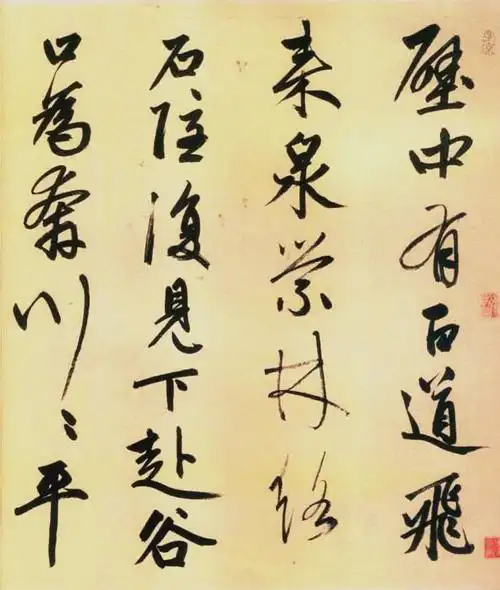 壁中有百道飛
來泉縈林絡
石隱復見下赴谷
口為奔川〻平